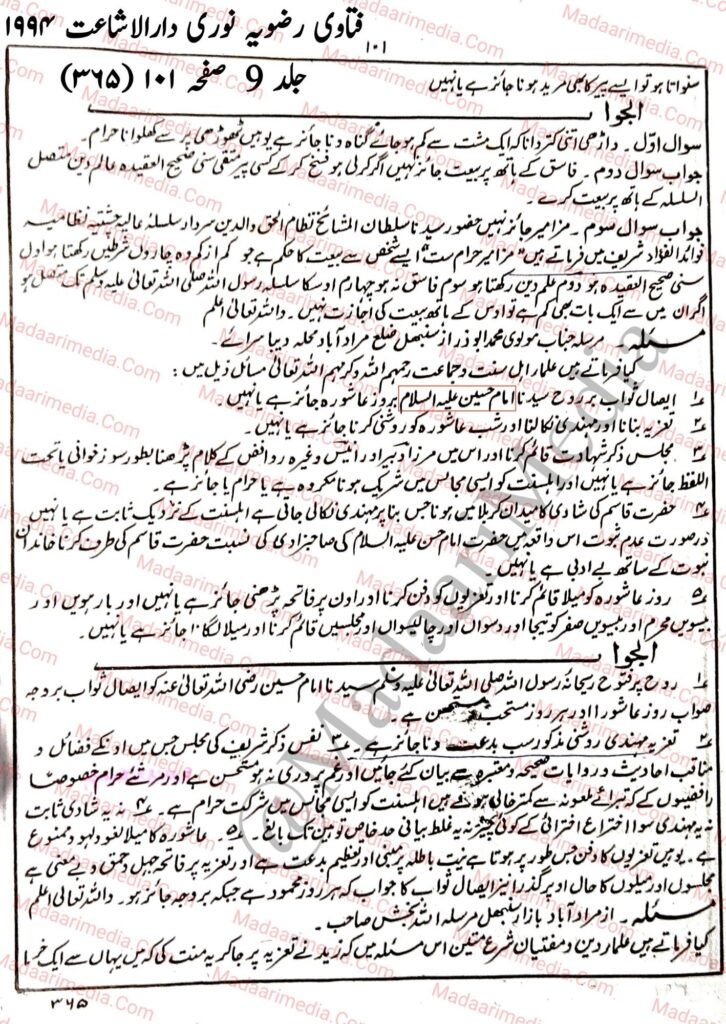 فتاوی رضویہ نوری دارالاشاعت ۱۹۹۴
۱۰۱
جلد 9 صفحہ ۱۰۱ (۳۶۵)
سنواتا ہو تو ایسے پیر کا بھی مرید ہونا جائز ہے یا نہیں
الجواب
سوال اوّل ۔ داڑھی اتنی کتروانا کہ ایک مشت سے کم ہو جائے گناہ و ناجائز ہے یوہیں ٹھوڑھی پر سے کھلوانا حرام ۔
جواب سوال دوم ۔ فاسق کے ہاتھ پر بیعت جائز نہیں اگر کر لی ہو فسخ کر کے کسی پیر متقی سنی صحیح العقیدہ عالم دین متصل
السلسلہ کے ہاتھ پر بیعت کرے ۔
جواب سوال سوم ۔ مزامیر جائز نہیں حضور سیدنا سلطان المشائخ نظام الحق والدین سردار سلسلۂ عالیہ چشتیہ نظامیہ
فوائد الفواد شریف میں فرماتے ہیں مزامیر حرام ست ایسے شخص سے بیعت کا حکم ہے جو کم از کم وہ چاروں شرطیں رکھتا ہو اول
سنی صحیح العقیدہ ہو دوم علم دین رکھتا ہو سوم فاسق نہ ہو چہارم اوسکا سلسلہ رسول اللہ صلی اللہ تعالی علیہ وسلم تک متصل ہو
اگر ان میں سے ایک بات بھی کم ہے تو اوس کے ہاتھ پر بیعت کی اجازت نہیں ۔ واللہ تعالی اعلم
مسئلہ ۔ مرسلہ جناب مولوی محمد ابوذر از سنبھل ضلع مراد آباد محلہ دیپا سرائے ۔
کیا فرماتے ہیں علماء اہل سنت و جماعت رحمہم اللہ وکرہم اللہ تعالی مسائل ذیل میں :
۱ ایصال ثواب بر روح سیدنا امام حسین علیہ السلام بروز عاشورہ جائز ہے یا نہیں ۔
۲ تعزیہ بنانا اور مہندی نکالنا اور شب عاشورہ کو روشنی کرنا جائز ہے یا نہیں ۔
۳ مجلس ذکر شہادت قائم کرنا اور اس میں مرزا دبیر اور انیس وغیرہ روافض کے کلام پڑھنا بطور سوز خوانی یا تحت
اللفظ جائز ہے یا نہیں اور اہلسنت کو ایسی مجالس میں شریک ہونا مکروہ ہے یا حرام یا جائز ہے ۔
۴ حضرت قاسم کی شادی کا میدان کربلا میں ہونا جس بنا پر مہندی نکالی جاتی ہے اہلسنت کے نزدیک ثابت ہے یا نہیں
درصورت عدم ثبوت اس واقعہ میں حضرت امام حسن علیہ السلام کی صاحبزادی کی نسبت حضرت قاسم کی طرف کرنا خاندان
نبوت کے ساتھ بے ادبی ہے یا نہیں ۔
۵ روز عاشورہ کو میلا قائم کرنا اور تعزیوں کو دفن کرنا اور اون پر فاتحہ پڑھنی جائز ہے یا نہیں اور بارہویں اور
بیسویں محرم اور بیسویں صفر کو تیجا اور دسواں اور چالیسواں اور مجلسیں قائم کرنا اور میلا لگانا جائز ہے یا نہیں ۔
الجواب
۱ روح پر فتوح ریحانہ رسول اللہ صلی اللہ تعالی علیہ وسلم سیدنا امام حسین رضی اللہ تعالی عنہ کو ایصال ثواب بر وجہ
صواب روز عاشورا اور ہر روز مستحب و مستحسن ہے ۔
۲ تعزیہ مہندی روشنی مذکور سب بدعت و ناجائز ہے ۔ ۳ نفس ذکر شریف کی مجلس جس میں اونکے فضائل و
مناقب احادیث و روایات صحیحہ و معتبرہ سے بیان کئے جائیں اور غم پروری نہ ہو مستحسن ہے اور مرثئے حرام خصوصا
رافضیوں کے کہ تبرائے ملعونہ سے کمتر خالی ہوتے ہیں اہلسنت کو ایسی مجالس میں شرکت حرام ہے ۔ ۴ نہ یہ شادی ثابت
نہ یہ مہندی سوا اختراع اختراعی کے کوئی چیز نہ یہ غلط بیانی حد خاص توہین تک بالغ ۔ ۵ عاشورہ کا میلا لغو و لہو و ممنوع
ہے ۔ یوہیں تعزیوں کا دفن جس طور پر ہوتا ہے نیت باطلہ پر مبنی اور تعظیم بدعت ہے اور تعزیہ پر فاتحہ جہل و حمق و بے معنی ہے
مجلسوں اور میلوں کا حال اوپر گذرا نیز ایصال ثواب کا جواب کہ ہر روز محمود ہے جبکہ بر وجہ جائز ہو ۔ واللہ تعالی اعلم
مسئلہ ۔ از مراد آباد بازار سنبھل مرسلہ اللہ بخش صاحب ۔
کیا فرماتے ہیں علماء دین و مفتیان شرع متین اس مسئلہ میں کہ زید نے تعزیہ پر جا کر یہ منت کی کہ میں یہاں سے ایک خرما
۳۶۵
@MadaariMedia
MadaariMedia.Com